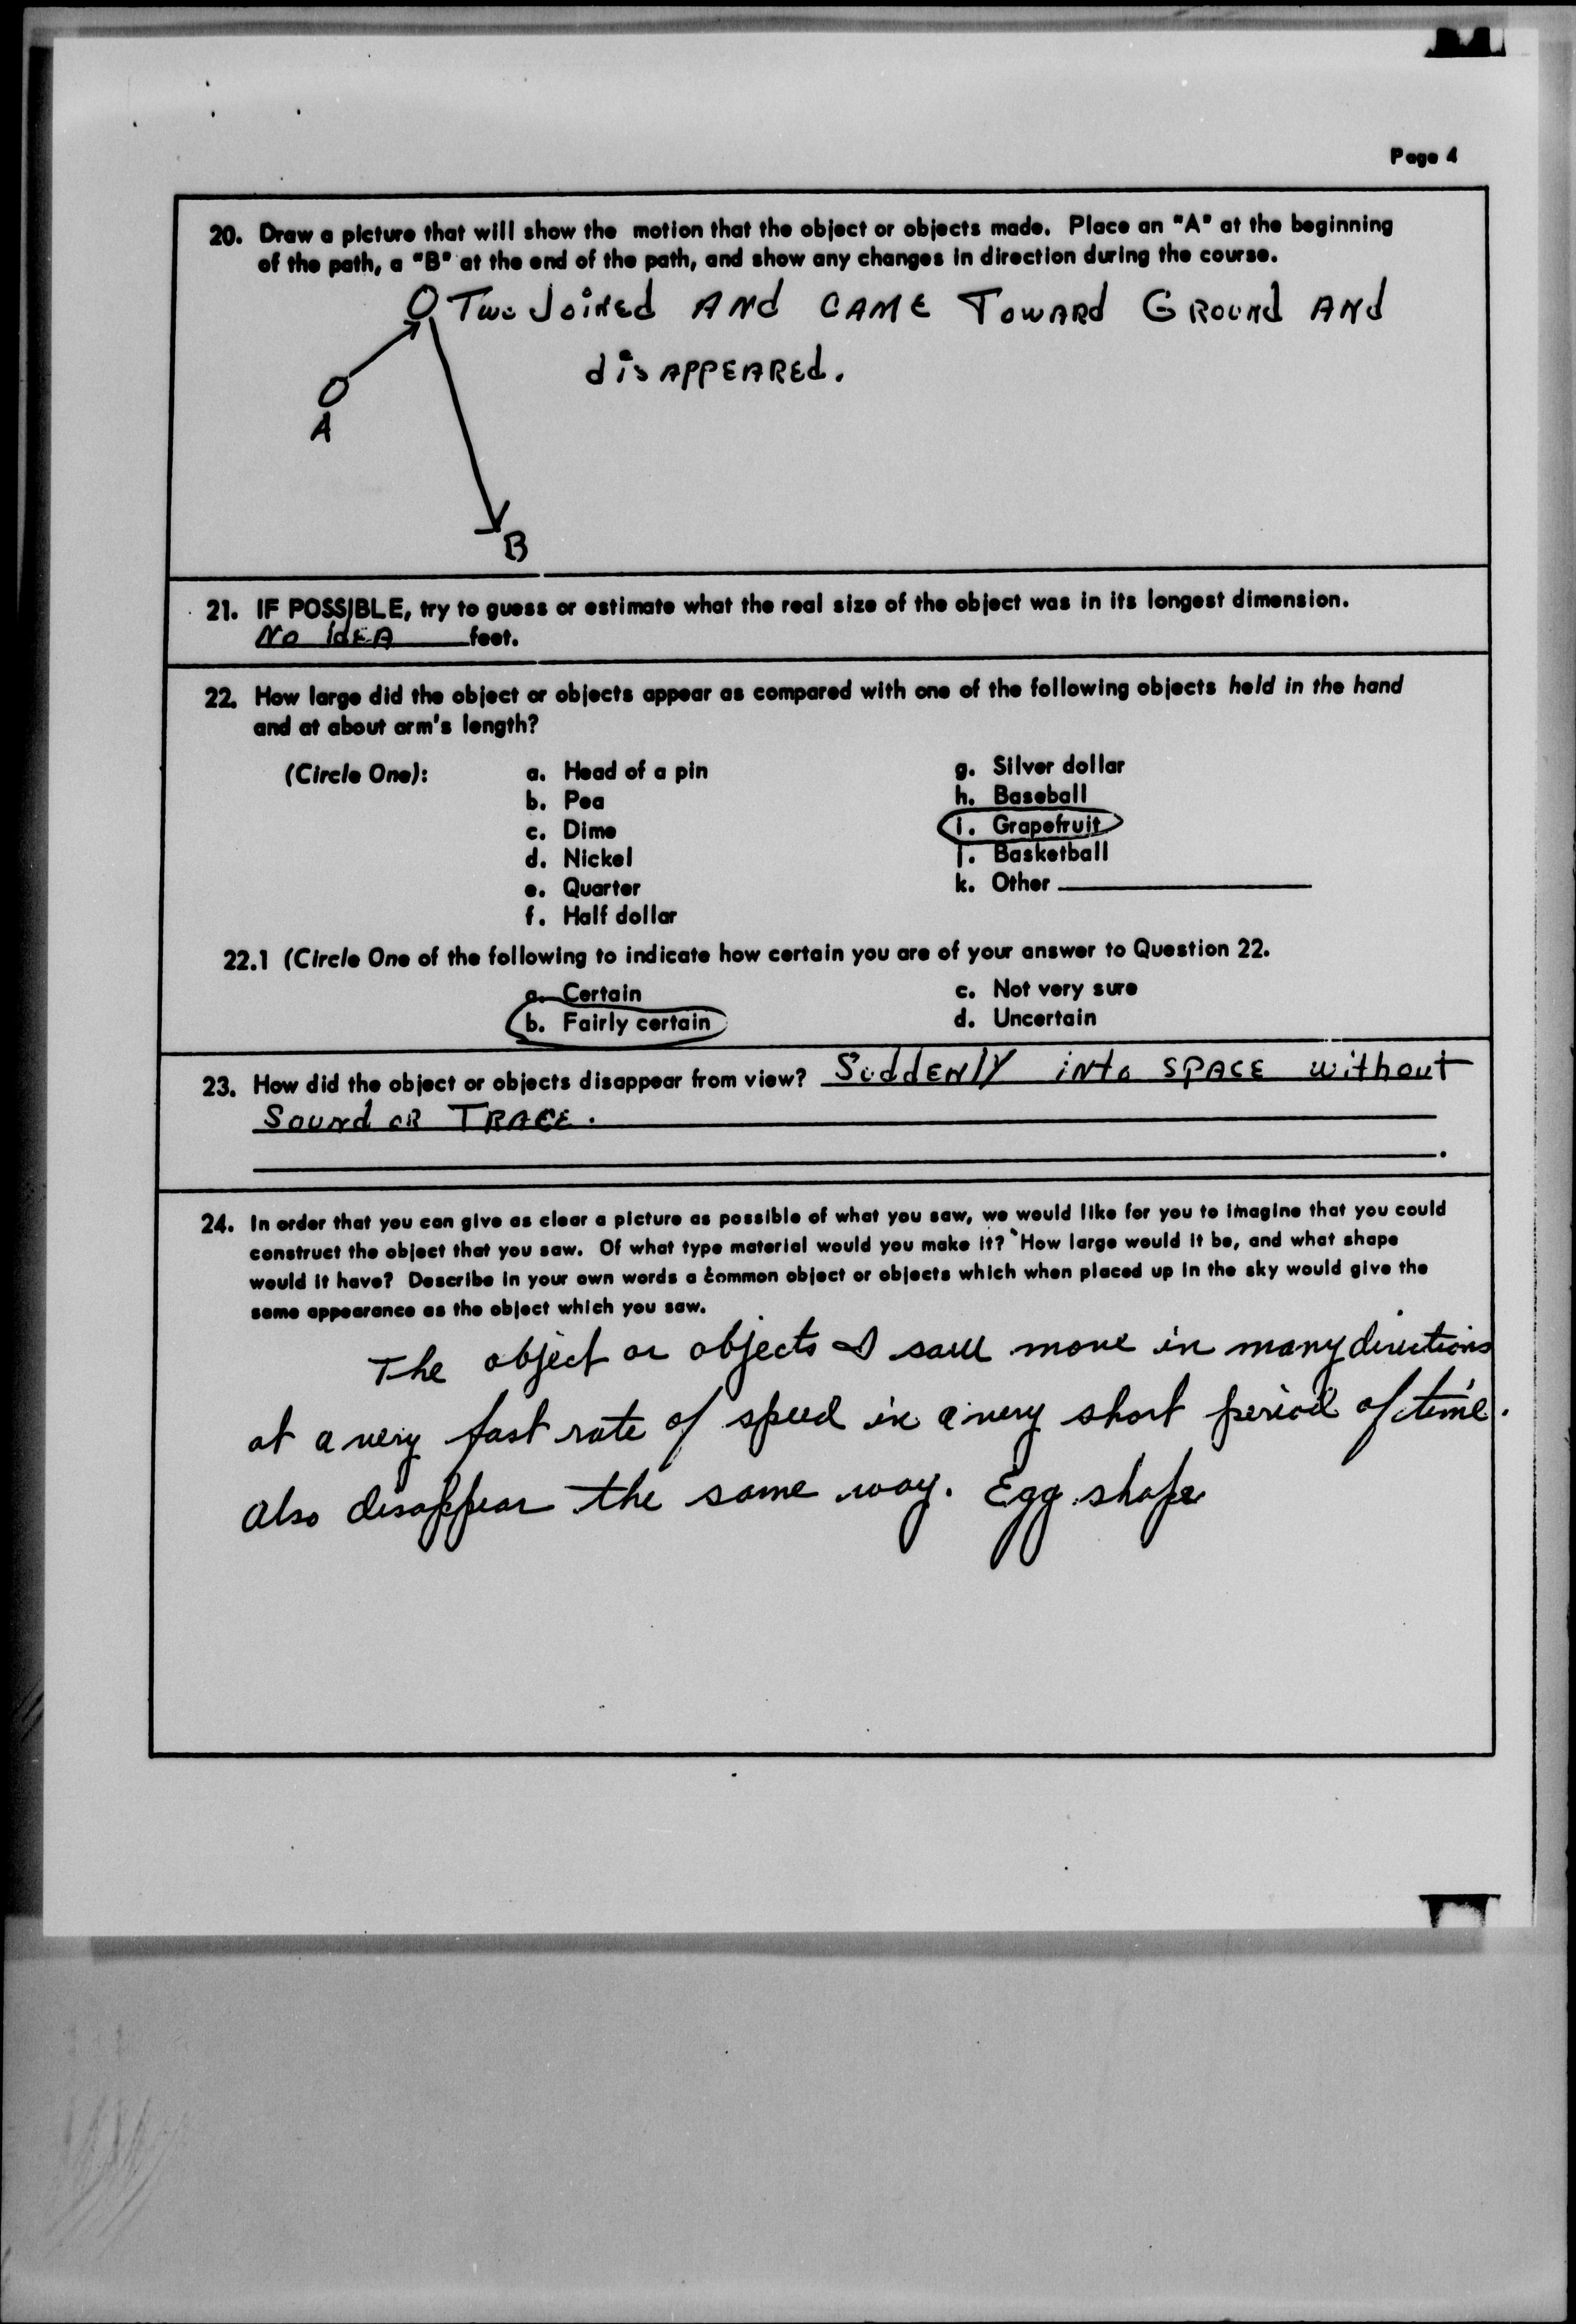 Page 4
20. Draw a picture that will show the motion that the object or objects made. Place an "A" at the beginning
of the path, a "B" at the end of the path, and show any changes in direction during the course.
Two Joined AND CAME TOWARD GROUND AND
disAPPEARED.
A
B
21. IF POSSIBLE, try to guess or estimate what the real size of the object was in its longest dimension.
No idEA feet.
22. How large did the object or objects appear as compared with one of the following objects held in the hand
and at about arm's length?
(Circle One): a. Head of a pin g. Silver dollar
b. Pea h. Baseball
c. Dime i. Grapefruit
d. Nickel j. Basketball
e. Quarter k. Other
f. Half dollar
22.1 (Circle One of the following to indicate how certain you are of your answer to Question 22.
a. Certain c. Not very sure
b. Fairly certain d. Uncertain
23. How did the object or objects disappear from view? SuddENlY iNto SPACE without
Sound OR TRACE.
24. In order that you can give as clear a picture as possible of what you saw, we would like for you to imagine that you could
construct the object that you saw. Of what type material would you make it? How large would it be, and what shape
would it have? Describe in your own words a common object or objects which when placed up in the sky would give the
same appearance as the object which you saw.
The object or objects I saw move in many directions
at a very fast rate of speed in a very short period of time.
also disappear the same way. Egg shape